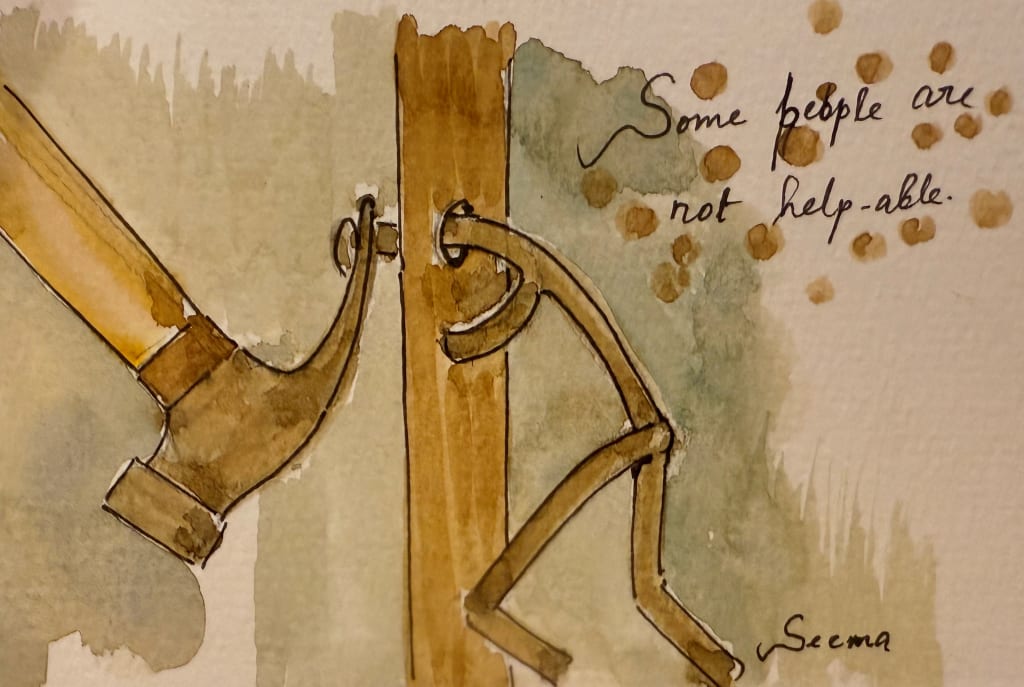 Some people are
not help-able.
Seema